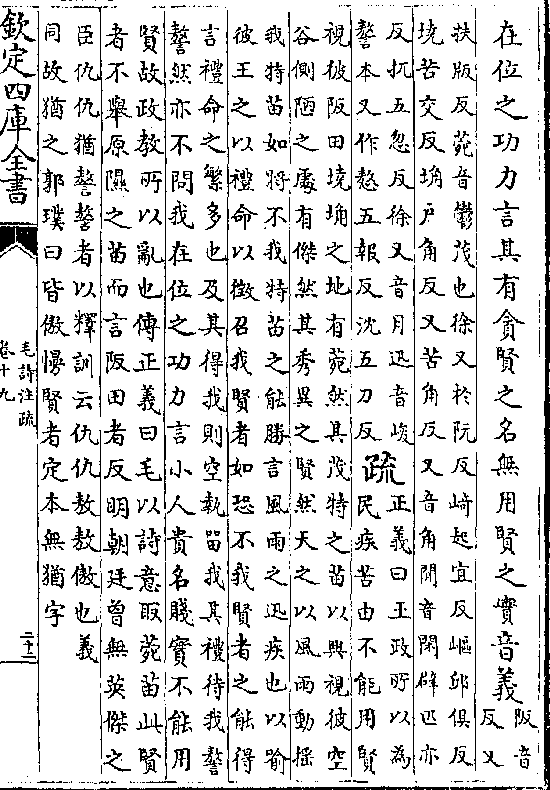 在位之功力言其有貪賢之名無用賢之實音義
阪音
反又
扶版反菀音鬱茂也徐又於阮反崎起宜反嶇邱俱反
墝苦交反埆户角反又苦角反又音角閒音閑辟匹亦
反扤五忽反徐又音月迅音峻
謷本又作敖五報反沈五刀反
疏
正義曰王政所以為
民疾苦由不能用賢
視彼阪田墝埆之地有菀然其茂特之苗以興視彼空
谷側陋之處有傑然其秀異之賢然天之以風雨動揺
我特苗如將不我特苗之能勝言風雨之迅疾也以喻
彼王之以禮命以徵召我賢者如恐不我賢者之能得
言禮命之繁多也及其得我則空執留我其禮待我謷
謷然亦不問我在位之功力言小人貴名賤實不能用
賢故政教所以亂也傳正義曰毛以詩意取菀苗此賢
者不舉原隰之苗而言阪田者反明朝廷曾無英傑之
臣仇仇猶謷謷者以釋訓云仇仇敖敖傲也義
同故猶之郭璞曰皆傲慢賢者定本無猶字
欽定四庫全書
毛詩注疏
卷十九
二十三